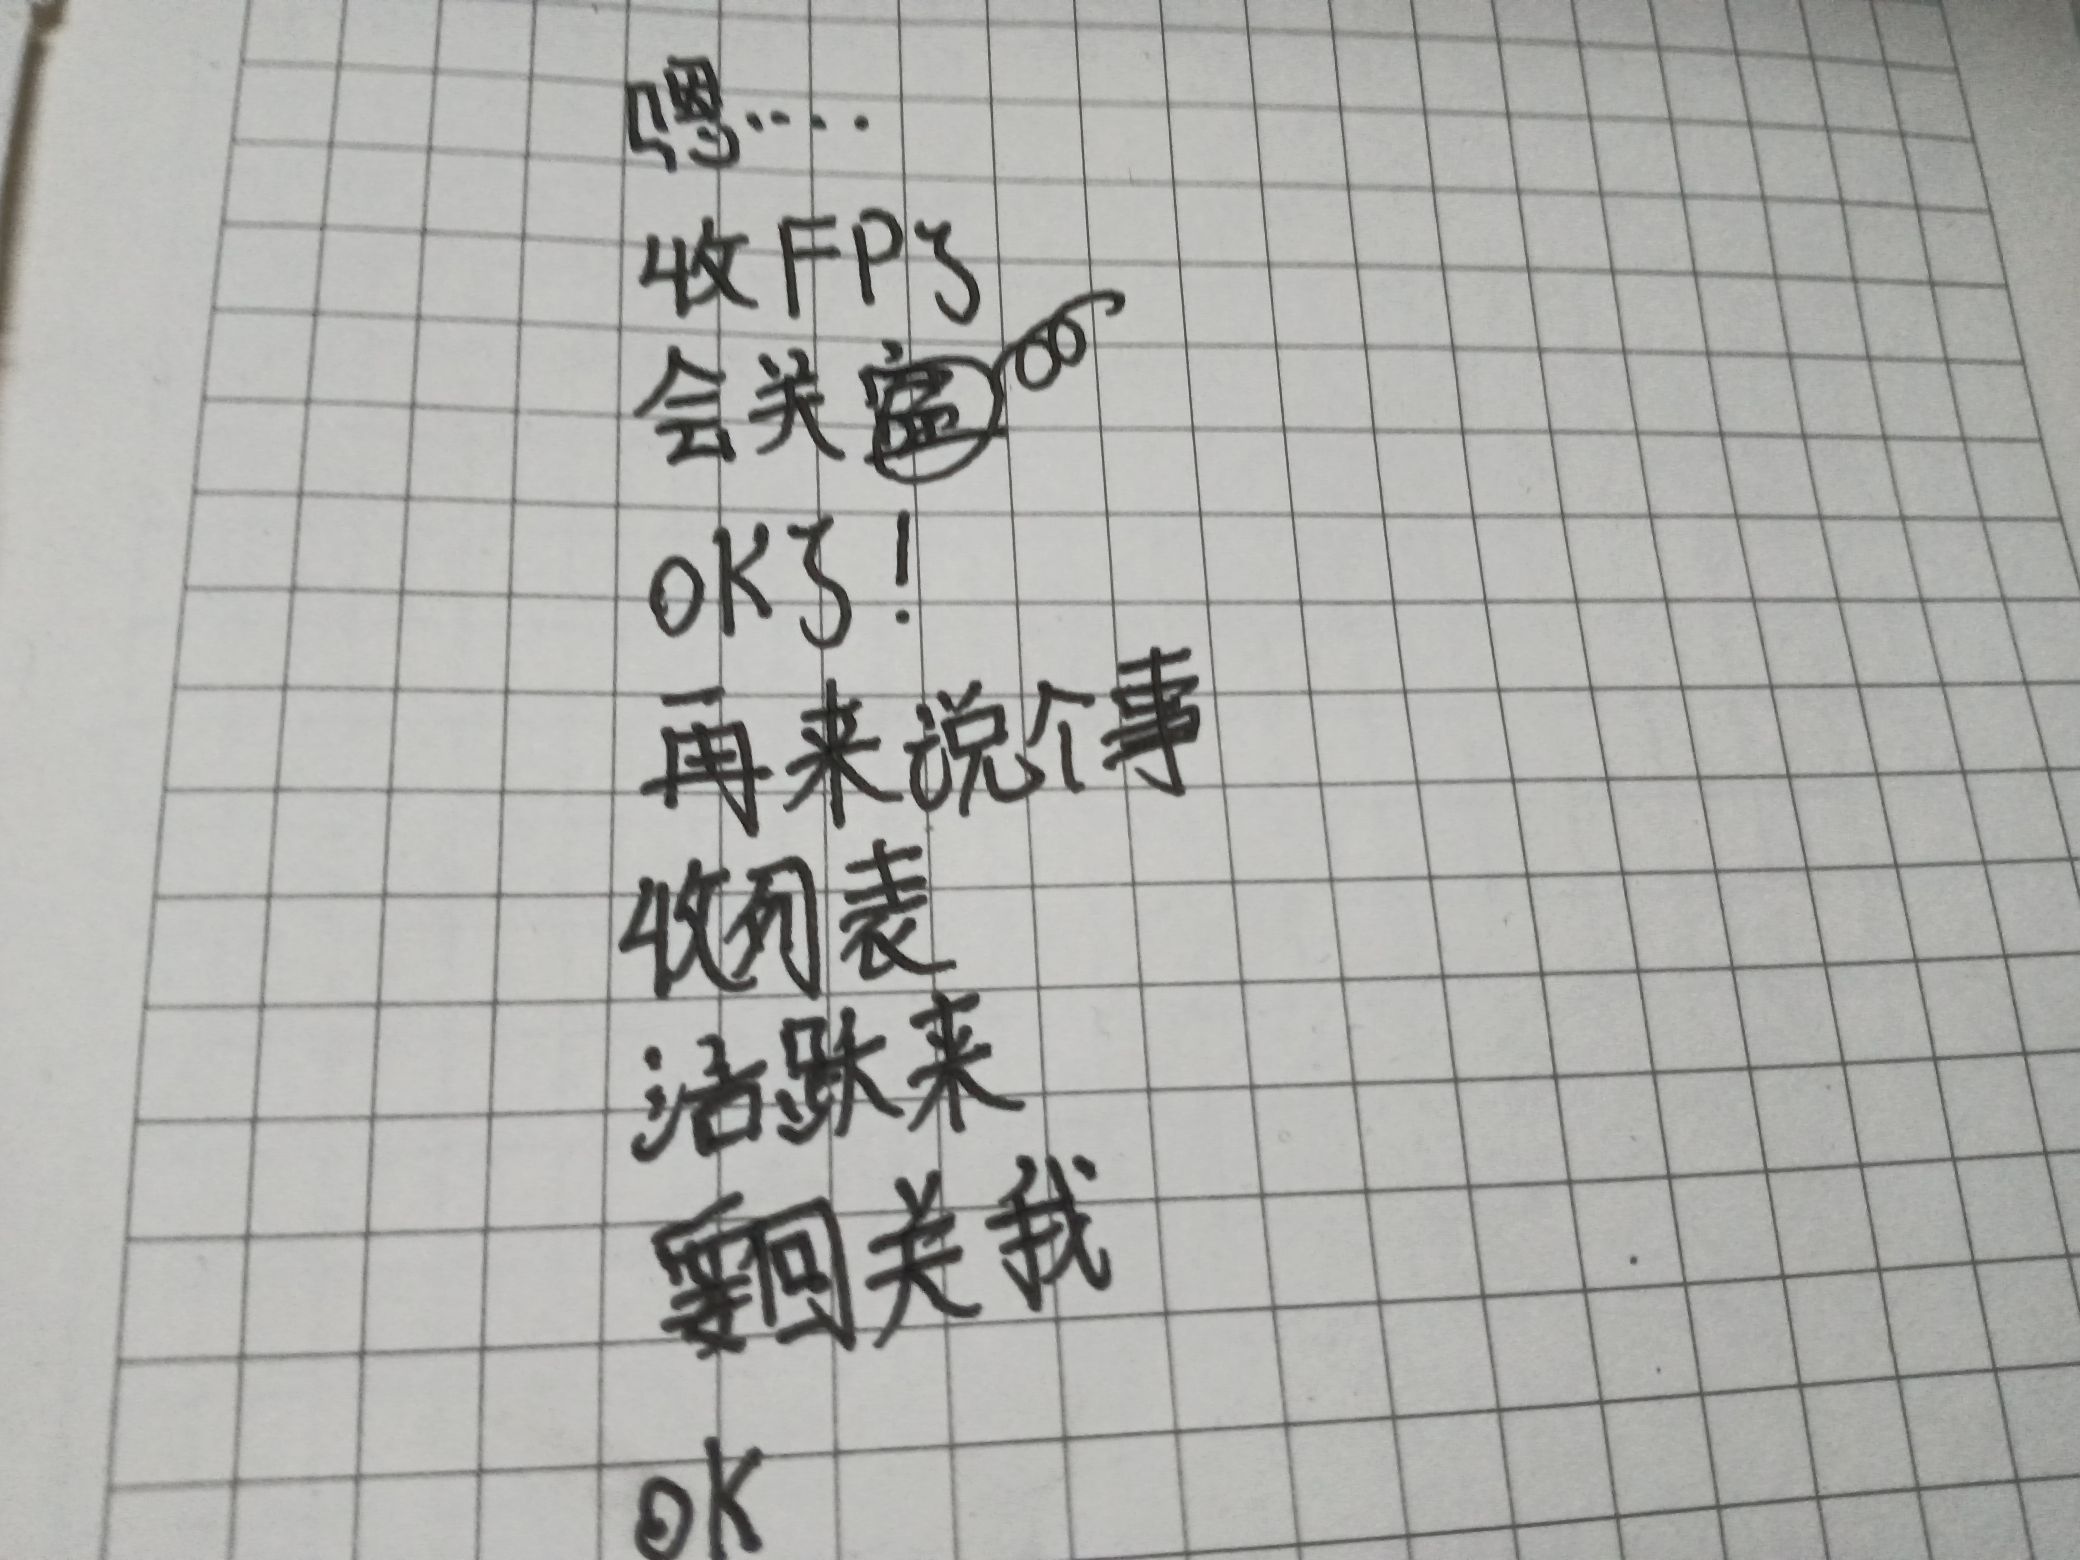 嗯····
收FP了
会关
OK了！
再来说个事
收列表
活跃来
要回关我
OK